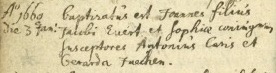 Ao 1669 Baptizatus est Joannes filius
die 3 Jan: Jacobi Evert et Sophiæ coniugum,
Susceptores Antonius Caris et
Gerarda Fuechen.